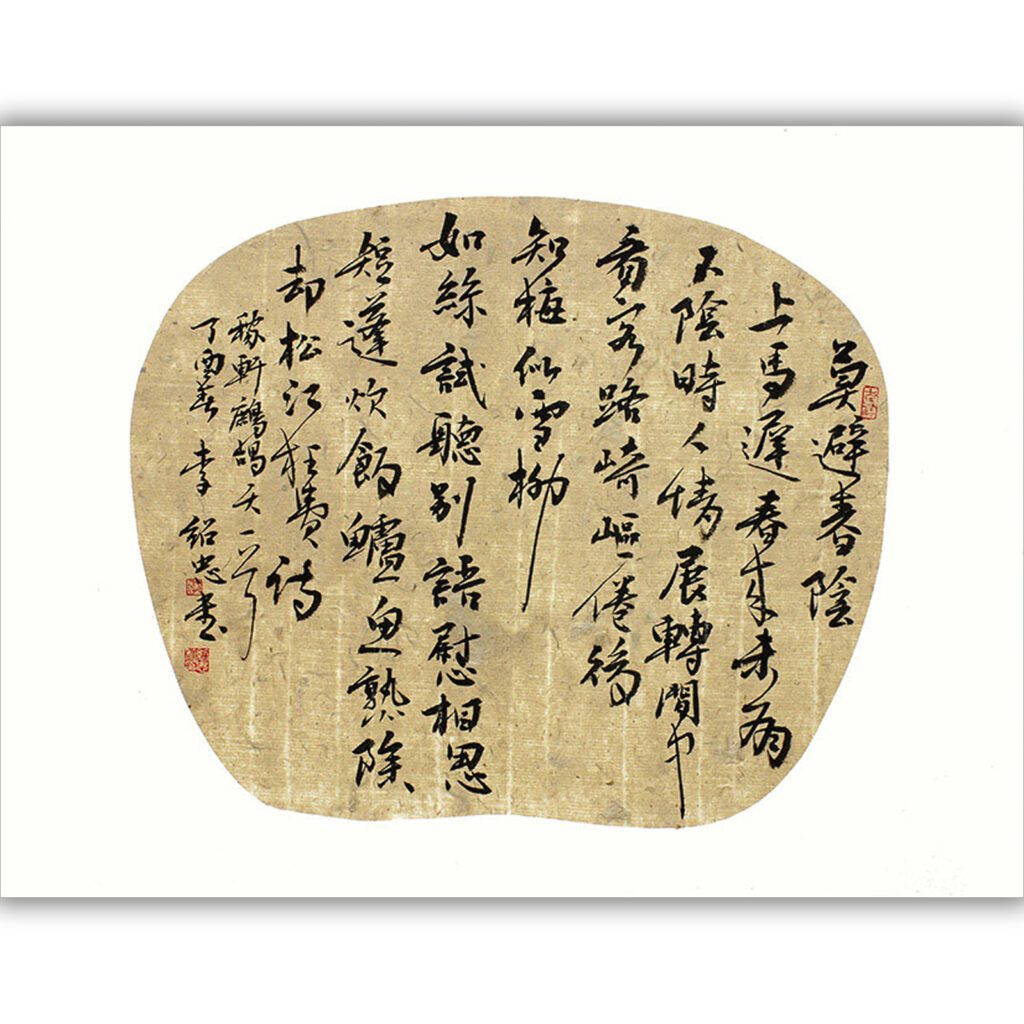 莫避春陰
上馬遲春來未有
不陰時人情展轉間中
看客路崎嶇倦後
知梅似雪柳
如絲試聽別語慰相思
短蓬炊飯鱸魚熟除
却松江枉費詩
稼軒鷓鴣天一首
丁酉春李紹忠書